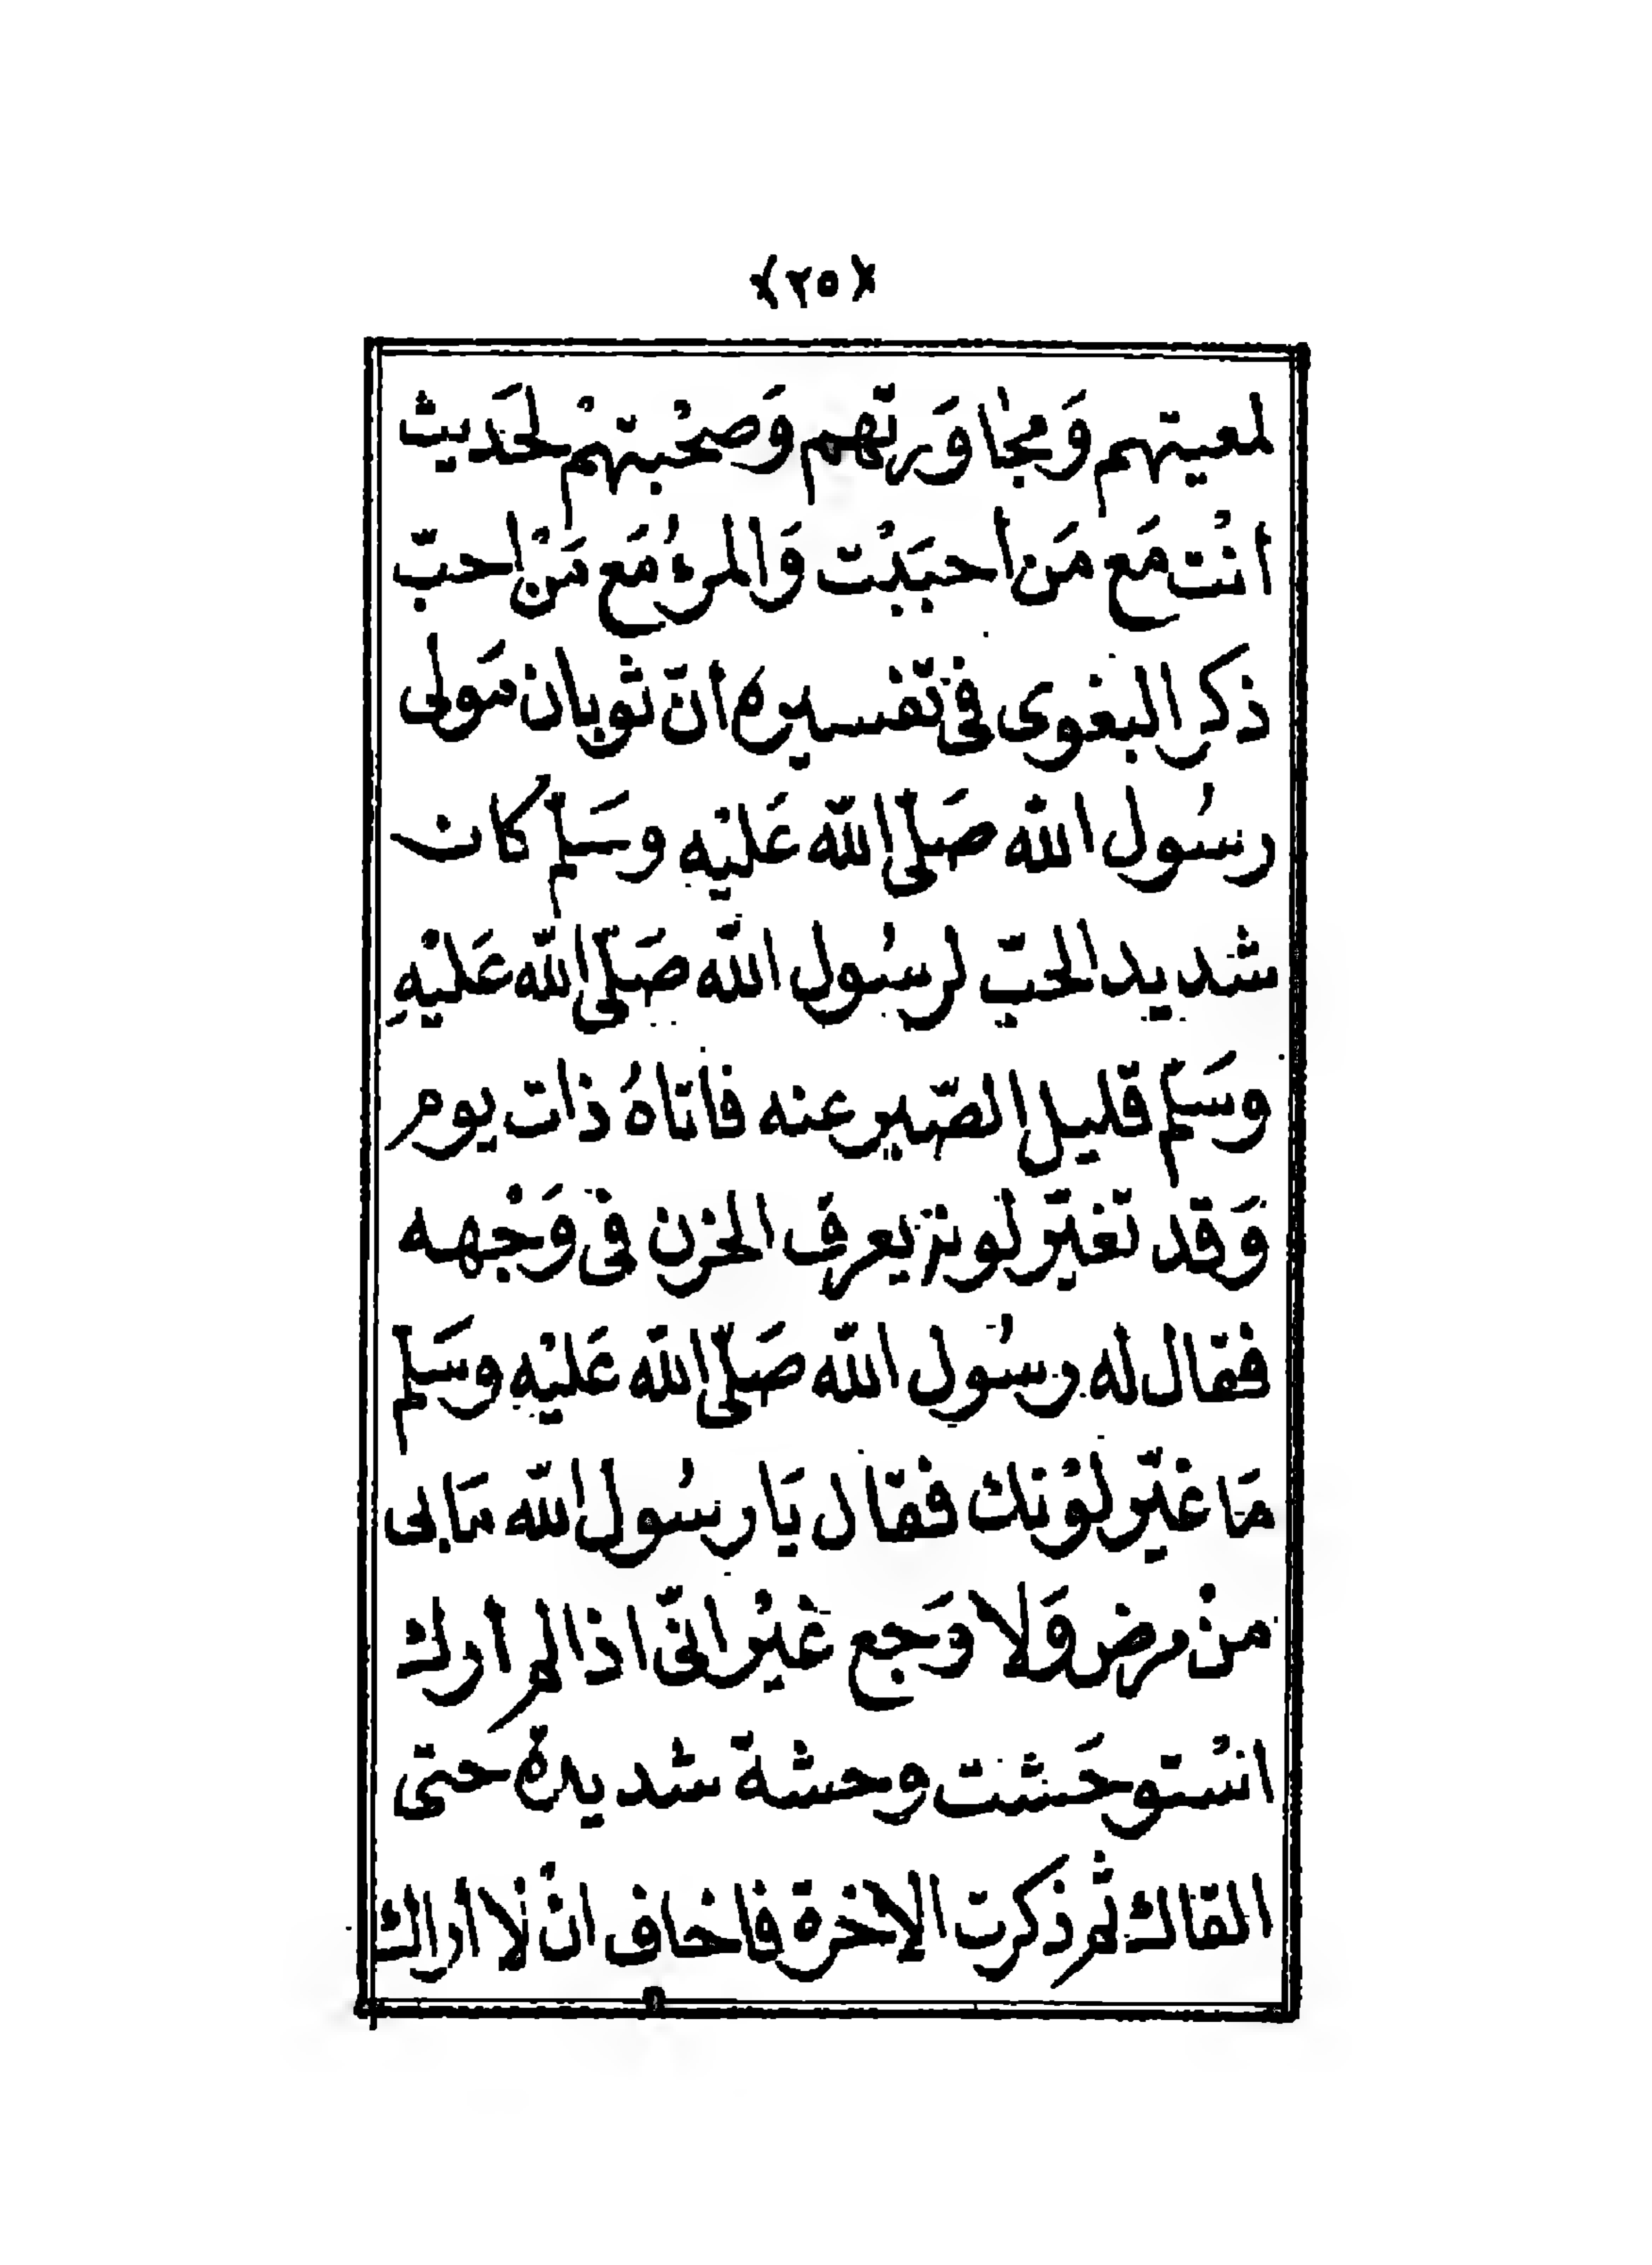 ﴿٢٥﴾
لمعيتهم وَمجٰاوَرتّهم وَصحْبتهمْ لحَديث
انْت مَع مَن احبَبْت وَالمرءُ مَع مَنْ احبّ
ذكر البغوى فى تّفسيره انّ ثوبان مَولى
رسُول اللّه صَلّى اللّه عَليْه وسَلّم كان
شديد الحبّ لرسُول اللّه صَلّى اللّه عَليْهِ
وسَلّم قليل الصّبر عنه فاتاهُ ذات يوم
وَقد تغيّر لونه يعرف الحزن فى وَجْهه
فقال له رسُول اللّه صَلّى اللّه عَليْه وسَلّم
مَا غيّر لوْنك فقال يَا رسُول اللّه مَا بى
منْ مرض وَلا وَجع غيْر انّى اذا لم ارك
اسْتوحَشت وحشة شديدة حَتى
القاك ثم ذكرت الاخرة فاخاف انْ لا اراك